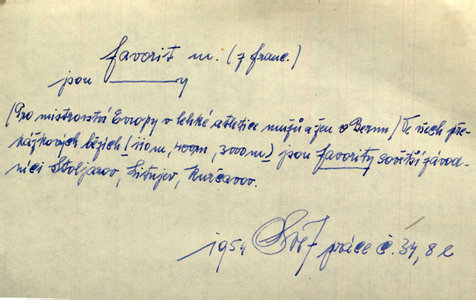 favorit m. (z franc.)
jsou ———y
(Pro mistrovství Evropy v lehké atletice mužů a žen v Bernu) Ve všech pře-
kážkových bězích (110m, 400m, 3000m) jsou favority sovětští závod-
níci Stoljarov, Litujev, Kurčavov.
1954 práce č. 34, 8 c